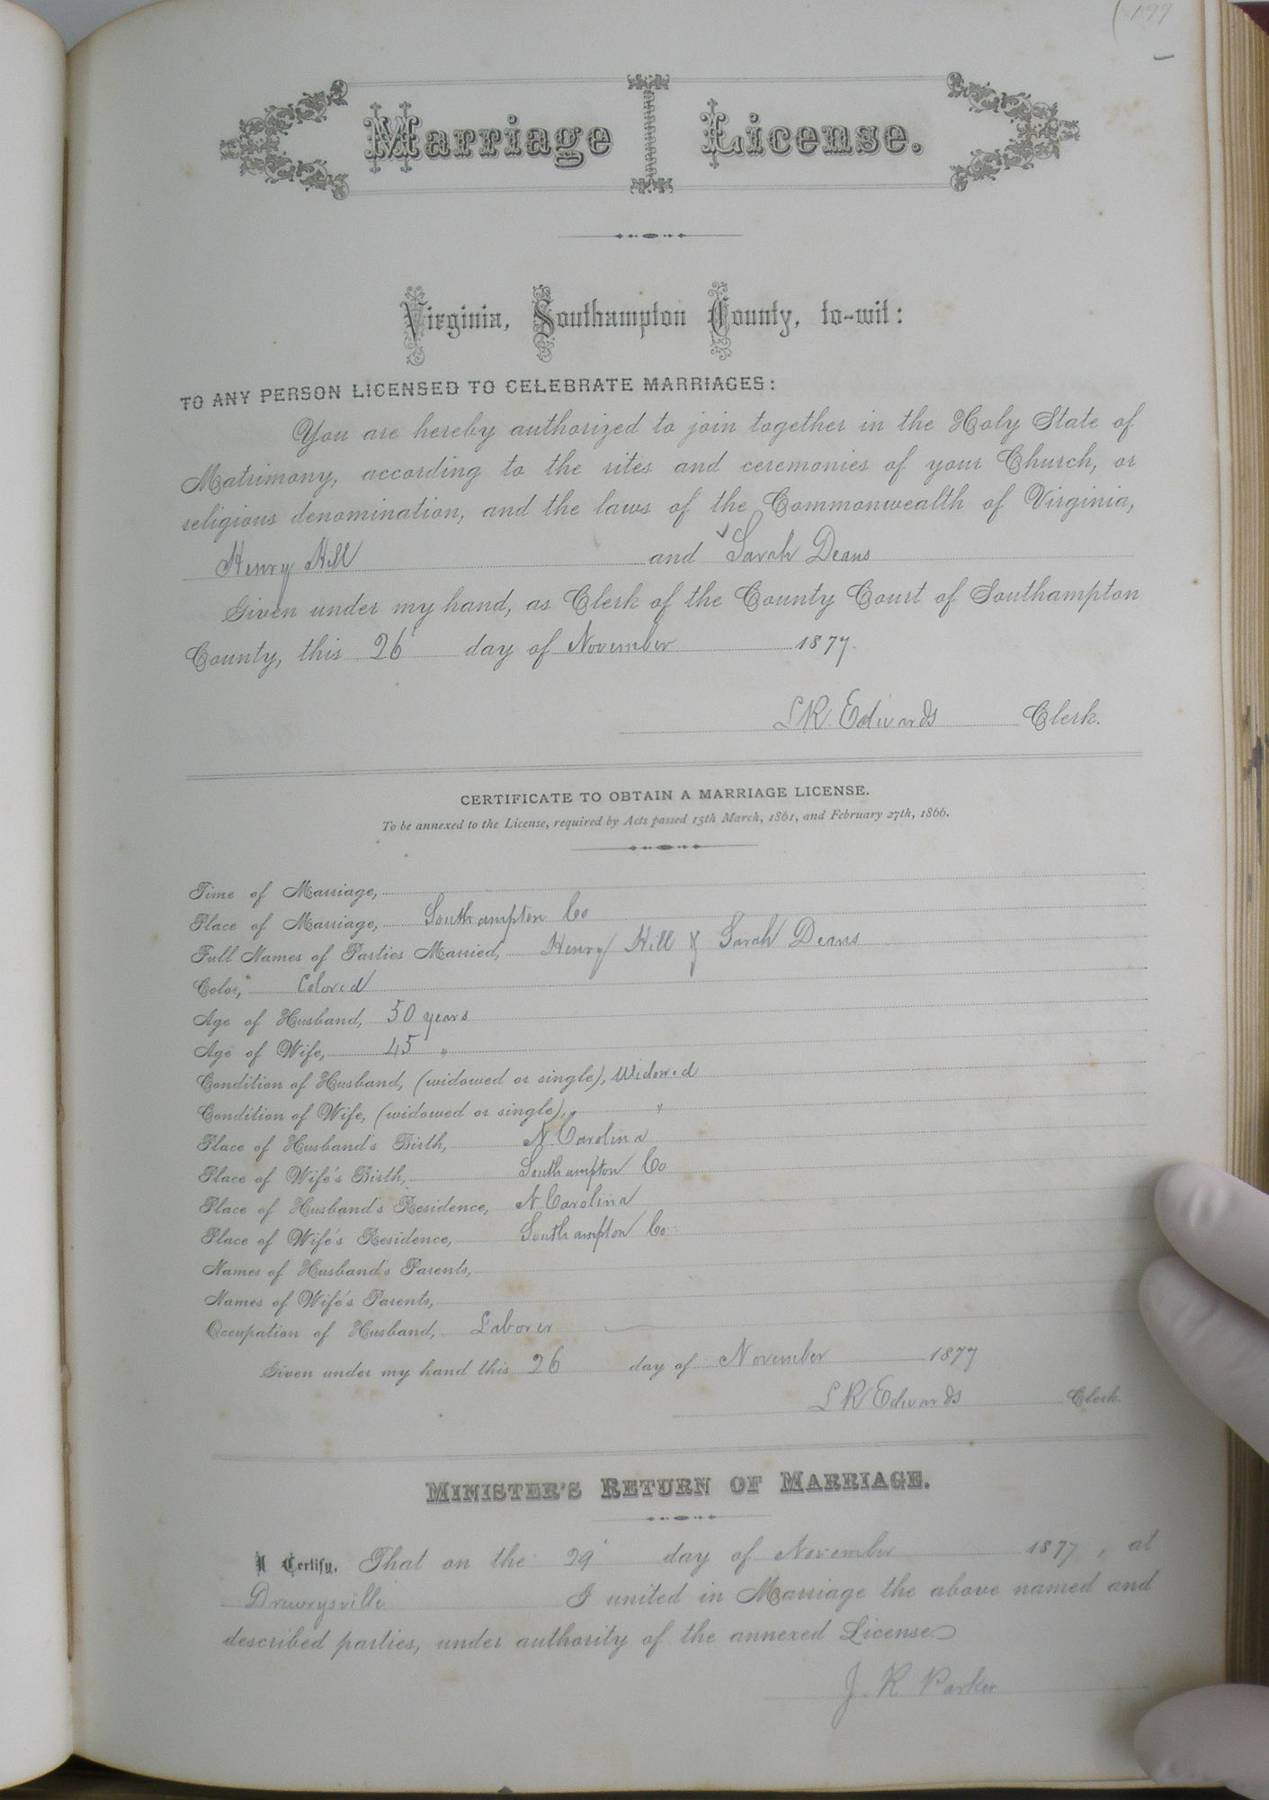 199
Marriage License.
Virginia, Southampton County, to-wit:
TO ANY PERSON LICENSED TO CELEBRATE MARRIAGES:
You are hereby authorized to join together in the Holy State of
Matrimony, according to the rites and ceremonies of your Church, or
religious denomination, and the laws of the Commonwealth of Virginia,
Henry Hill and Sarah Deans
Given under my hand, as Clerk of the County Court of Southampton
County, this 26 day of November 1877.
L R. Edwards Clerk.
CERTIFICATE TO OBTAIN A MARRIAGE LICENSE.
To be annexed to the License, required by Acts passed 15th March, 1861, and February 27th, 1866.
Time of Marriage,
Place of Marriage, Southampton Co
Full Names of Parties Married, Henry Hill & Sarah Deans
Color, Colored
Age of Husband, 50 years
Age of Wife, 45 "
Condition of Husband, (widowed or single), Widowed
Condition of Wife, (widowed or single), "
Place of Husband's Birth, N. Carolina
Place of Wife's Birth, Southampton Co
Place of Husband's Residence, N Carolina
Place of Wife's Residence, Southampton Co
Names of Husband's Parents,
Names of Wife's Parents,
Occupation of Husband, Laborer
Given under my hand this 26 day of November 1877
L R Edwards Clerk.
MINISTER'S RETURN OF MARRIAGE.
I Certify, That on the 29 day of November 1877, at
Drewrysville I united in Marriage the above named and
described parties, under authority of the annexed License
J. R Parker